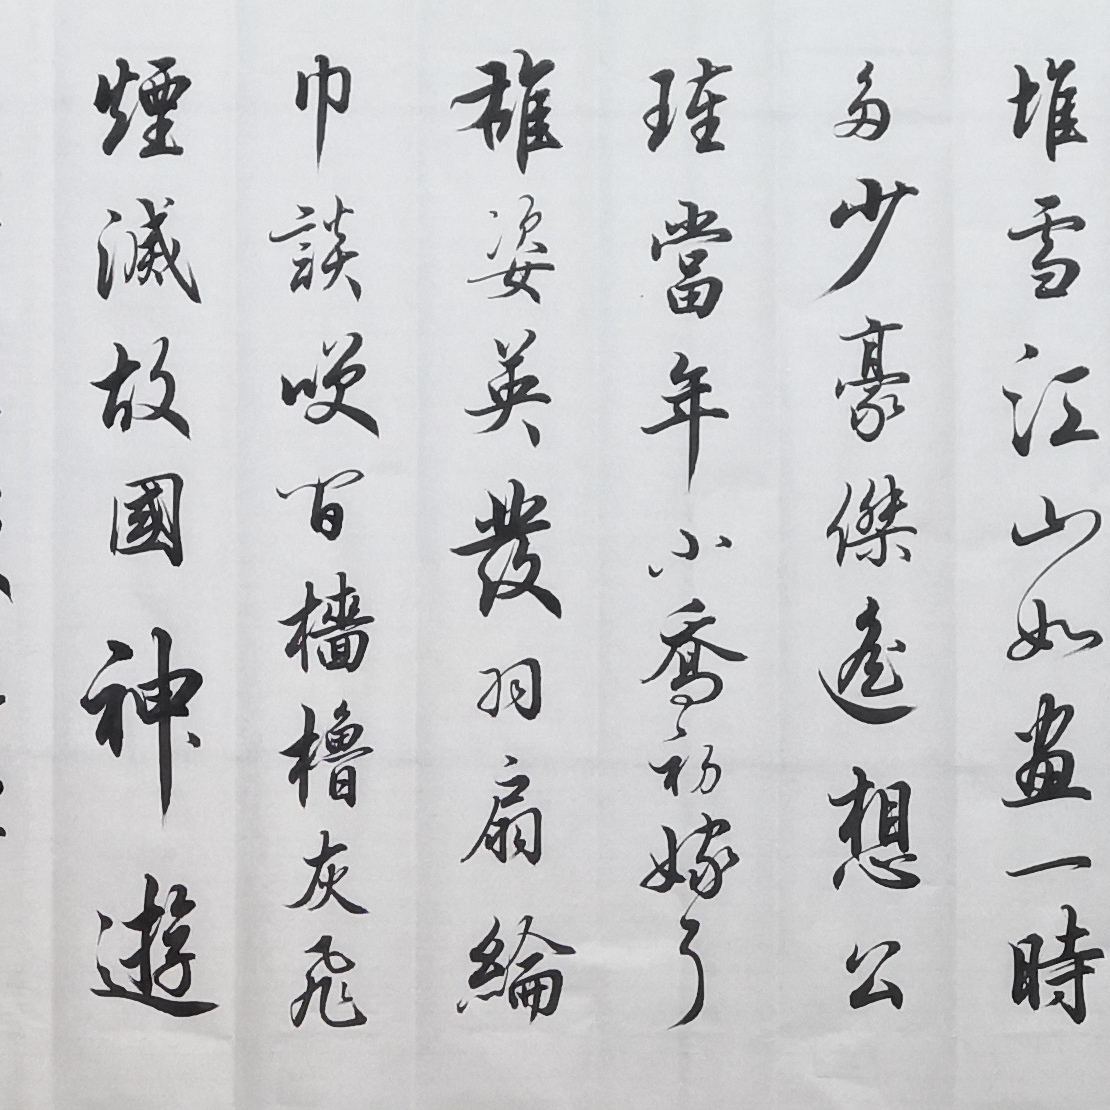 堆雪江山如畫一時
多少豪傑遙想公
瑾當年小喬初嫁了
雄姿英發羽扇綸
巾談笑間檣櫓灰飛
煙滅故國神遊